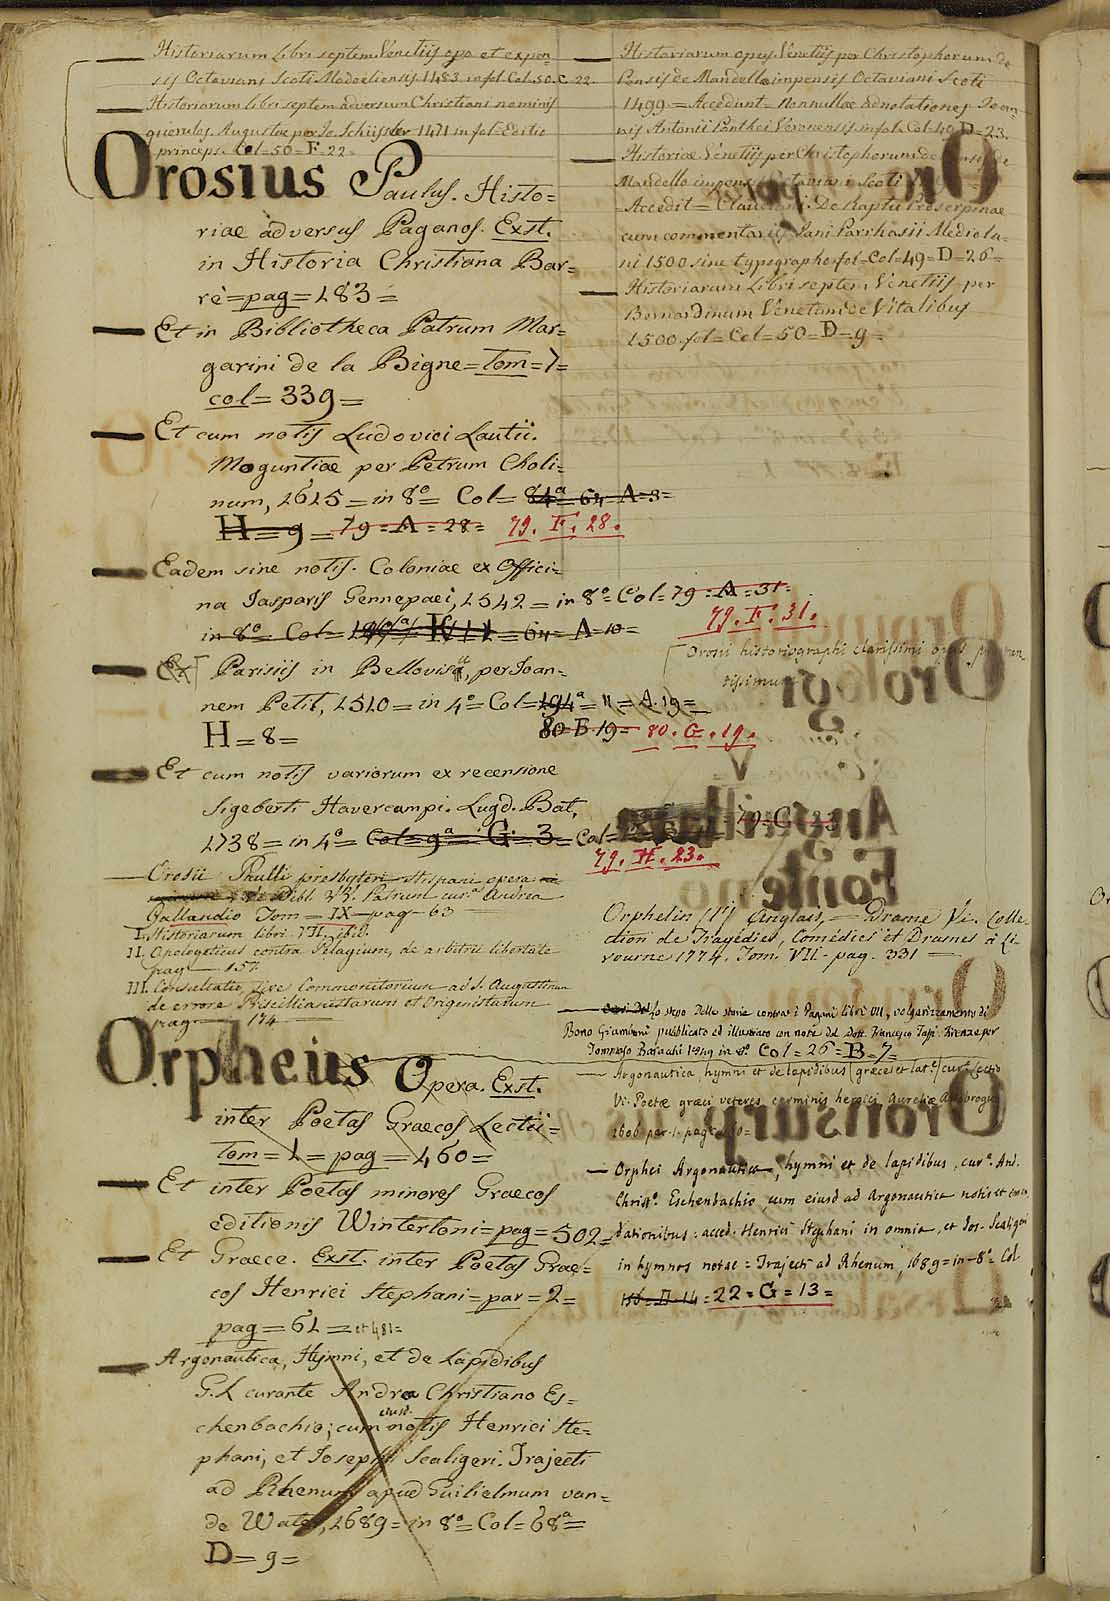 Historiarum Libri septem Venetiis ope et expen
sis Octaviani Scoti Modoetiensis 1483 in fol. Col. 50. C. 22.
Historiarum libri septem adversum Christiani nominis
querulos. Augustae per Jo. Schüssler 1471 in fol = Editio
princeps. Col = 50 = F. 22 =
Orosius Paulus. Histo=
riae adversus Paganos. Exst.
in Historia Christiana Bar=
rè = pag = 183 =
Et in Bibliotheca Patrum Mar=
garini de la Bigne = tom = 7 =
col = 339 =
Et cum notis Ludovici Lautii.
Moguntiae per Petrum Choli=
num, 1615 = in 8° Col = 84ª 64 = A = 3 =
H = 9 = 79 = A = 28 = 79. F. 28.
Eadem sine notis. Coloniae ex Offici=
na Jasparis Gennepaei, 1542 = in 8° Col = 79 = A = 31 =
79. F. 31.
in 8° Col = = 64 = A = 10 =
Ex Parisiis in Bellovisu, per Joan=
nem Petit, 1510 = in 4° Col = 194ª = 11 = A. 19 =
H = 8 = 80 = F. 19 = 80. G. 19.
Et cum notis variorum ex recensione
Sigeberti Havercampi. Lugd. Bat.
1738 = in 4° Col = 9ª = G = 3 = Col = = 79 = G = 23
79. H. 23.
Orosii Paulli presbyteri Hispani opera
Bibl. VV. Patrum cur.ª Andrea
Gallandio Tom = IX = pag = 63
I. Historiarum libri VII. ibid.
II. Apologeticus contra Pelagium, de arbitrii libertate
pag — 157
III. Consultatio, sive Commonitorium ad S. Augustinum
de errore Priscillianistarum et Origenistarum
pag — 174
Orpheus Opera. Exst.
inter Poetas Graecos Lectii=
Tom = 1 = pag = 460 =
Et inter Poetas minores Graecos
editionis Wintertoni = pag = 502 =
Et Graece. Exst. inter Poetas Grae=
cos Henrici Stephani = par = 2 =
pag = 61 = et 481 =
Argonautica, Hymni, et de Lapidibus
G. L curante Andrea Christiano Es=
chenbachio; cum ejusd. notis Henrici Ste=
phani, et Josephi Scaligeri. Trajecti
ad Rhenum apud Guilielmum van=
de Water, 1689 = in 8° Col = 68ª =
D = 9 =
Historiarum opus Venetiis per Christophorum de
Pensis de Mandello impensis Octaviani Scoti
1499 = Accedunt = nonnullae adnotationes Joan
nis Antonii Panthei Veronensis in fol. Col. 49. D = 23.
Historiae Venetiis per Christophorum de Pensis de
Mandello impensis Octaviani Scoti
Accedit = Claudiani. De Raptu Proserpinae
cum commentariis Jani Parrhasii Mediola=
ni 1500 sine typographo. fol = Col = 49 = D = 26 =
Historiarum Libri septem Venetiis per
Bernardinum Venetum de Vitalibus
1500. fol = Col = 50 = D = 9 =
Orosii historiographi clarissimi opus prestan
tissimum
Orphelin (l') Anglais, = Drame Vi. Colle=
ction de Tragédies, Comédies et Drames à Li
vourne 1774. Tom. VII. pag. 331 —
lo stesso Delle storie contra i Pagani libri VII, volgarizzamento di
Bono Giamboni pubblicato ed illustrato con note dal Dott. Francesco Tassi. Firenze per
Tommaso Baracchi 1849 in 8° Col = 26 = B = 7 =
Argonautica, hymni et de lapidibus (graece et lat.e) cur.e Lectio
Vi. Poetae graeci veteres carminis heroici Aureliae Allobrogum
1606 par. 1. pag
Orphei Argonautica, hymni et de lapidibus, cur.e And.
Christ.° Eschenbachio, cum ejusd ad Argonautica notis et emen
dationibus: acced. Henrici Stephani in omnia, et Jos. Scaligeri
in hymnos notae = Trajecti ad Rhenum, 1689 = in = 8° Col.
156 = D. 14 = 22 = G = 13 =